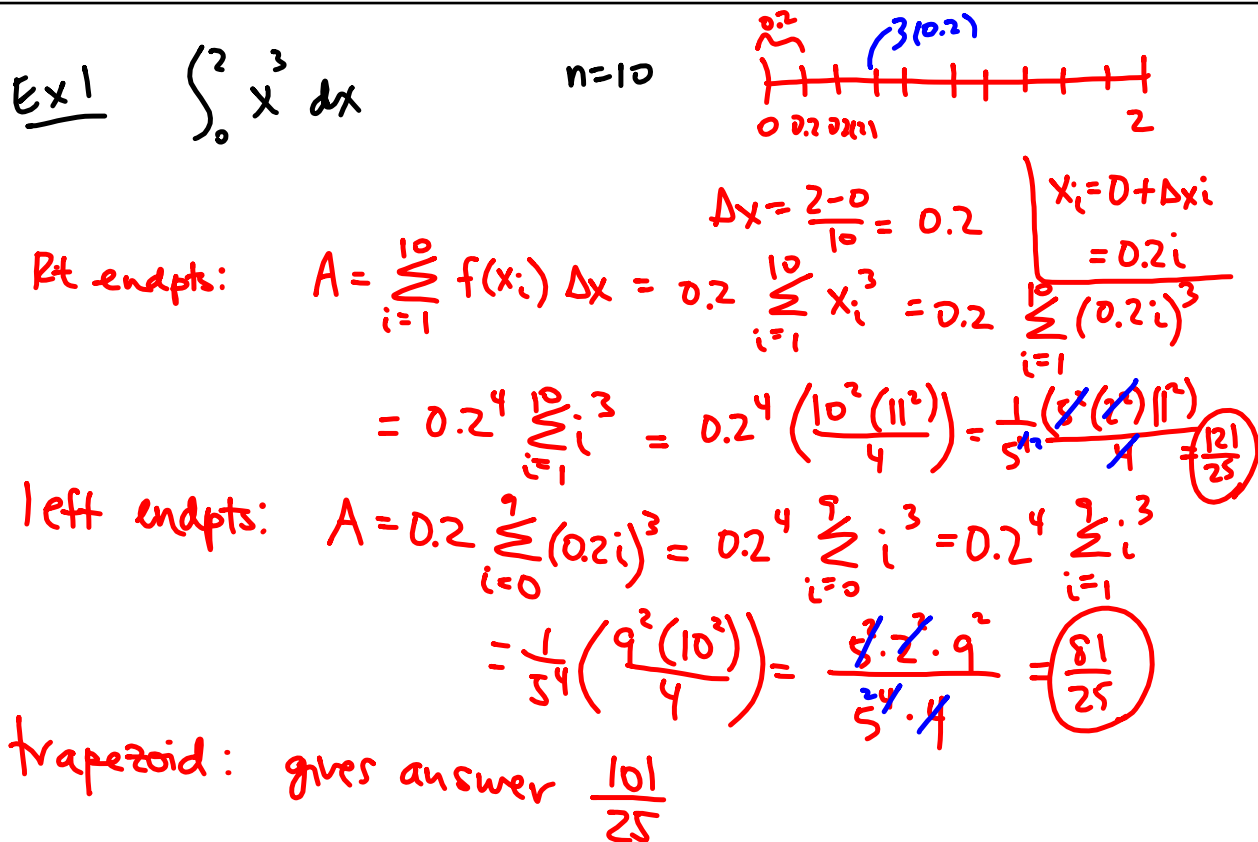 Ex 1 ∫₀² x³ dx n=10
0.2 3(0.2)
0 0.2 0.2(2) 2
Δx = (2-0)/10 = 0.2
xᵢ = 0 + Δxi
= 0.2i
Rt endpts: A = Σ_{i=1}^{10} f(xᵢ) Δx = 0.2 Σ_{i=1}^{10} xᵢ³ = 0.2 Σ_{i=1}^{10} (0.2i)³
= 0.2⁴ Σ_{i=1}^{10} i³ = 0.2⁴ (10²(11²)/4) = 1/5⁴² (5²(2²)11²)/4 = 121/25
left endpts: A = 0.2 Σ_{i=0}^{9} (0.2i)³ = 0.2⁴ Σ_{i=0}^{9} i³ = 0.2⁴ Σ_{i=1}^{9} i³
= 1/5⁴ (9²(10²)/4) = (5²·2²·9²)/(5²⁴·4) = 81/25
trapezoid: gives answer 101/25